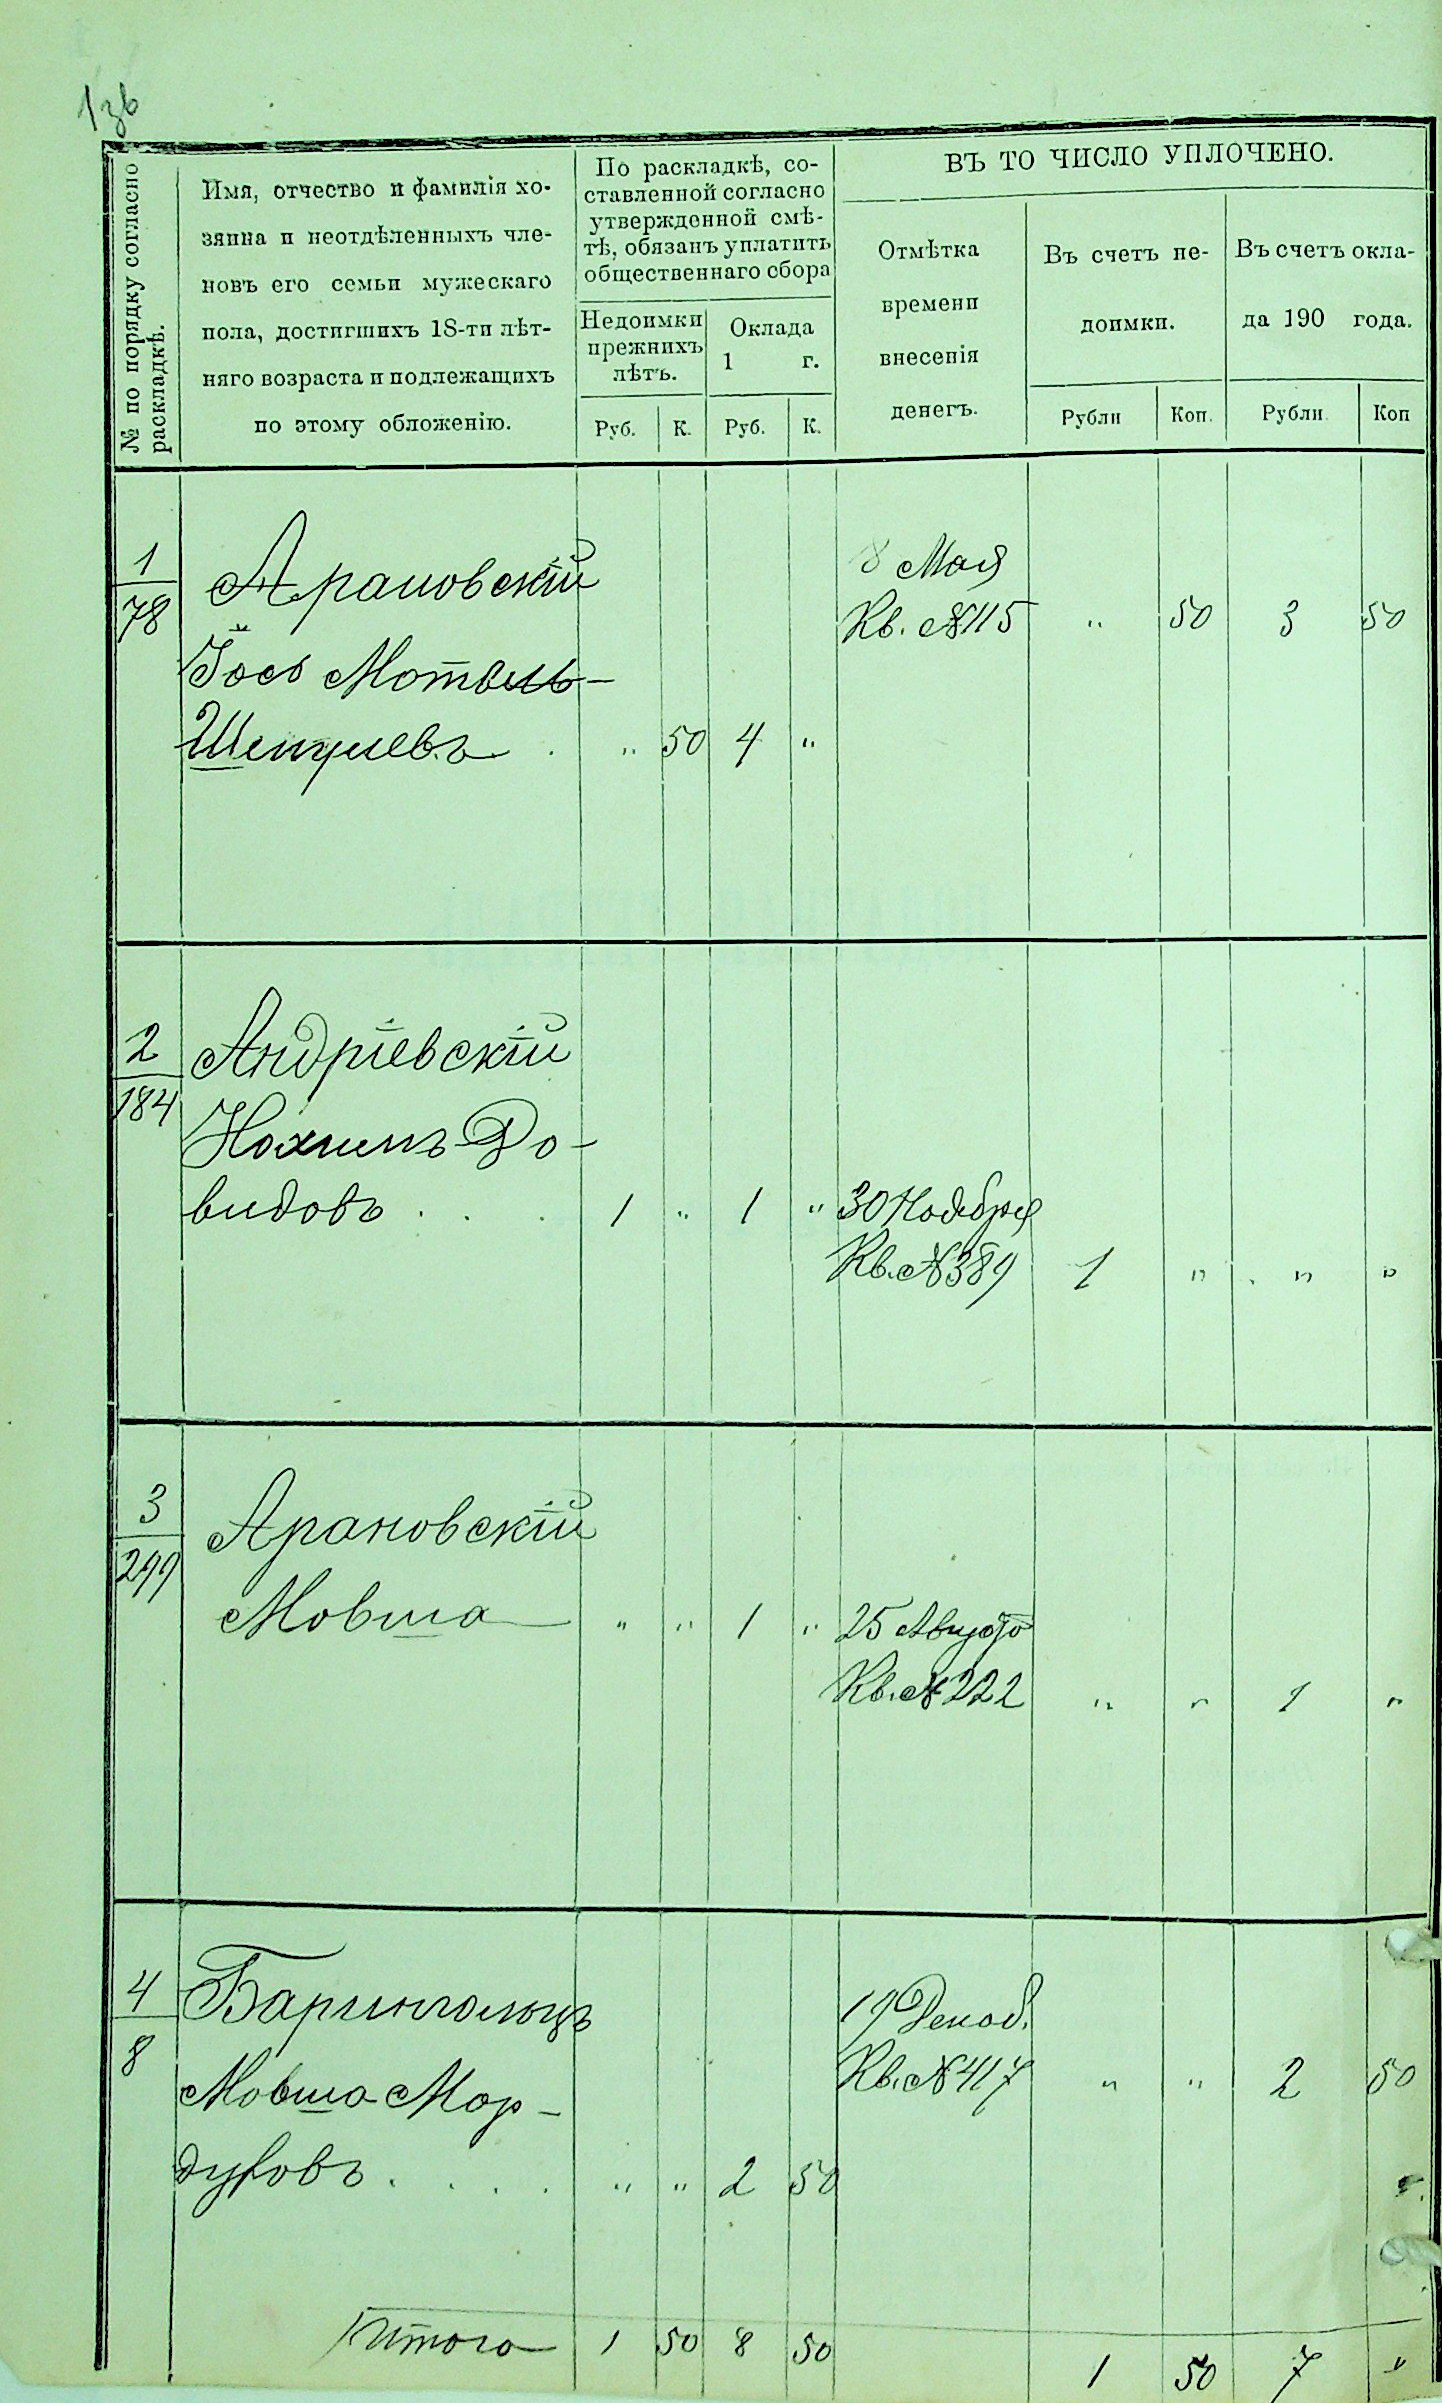 1зв
№ по порядку согласно
раскладкѣ.
Имя, отчество и фамилія хо-
зяина и неотдѣленныхъ чле-
новъ его семьи мужескаго
пола, достигшихъ 18-ти лѣт-
няго возраста и подлежащихъ
по этому обложенію.
По раскладкѣ, со-
ставленной согласно
утвержденной смѣ-
тѣ, обязанъ уплатить
общественнаго сбора
Недоимки
прежнихъ
лѣтъ.
Оклада
1 г.
Руб. К. Руб. К.
ВЪ ТО ЧИСЛО УПЛОЧЕНО.
Отмѣтка
времени
внесенія
денегъ.
Въ счетъ не-
доимки.
Въ счетъ окла-
да 190 года.
Рубли Коп. Рубли Коп
1
78
Арановскій
Іось Мотель-
Шепулевъ . „ 50 4 „
8 Мая
Кв. №115 „ 50 3 50
2
184
Андріевскій
Нохимъ До-
видовъ . . . 1 „ 1 „ 30 Ноября
Кв. №389 1 „ „ „
3
299
Арановскій
Мовша „ „ 1 „ 25 Августа
Кв. №222 „ „ 1 „
4
8
Барингольцъ
Мовша Мор-
духовъ . . . . „ „ 2 50
19 Декаб.
Кв. №417 „ „ 2 50
Итого 1 50 8 50
1 50 7 „